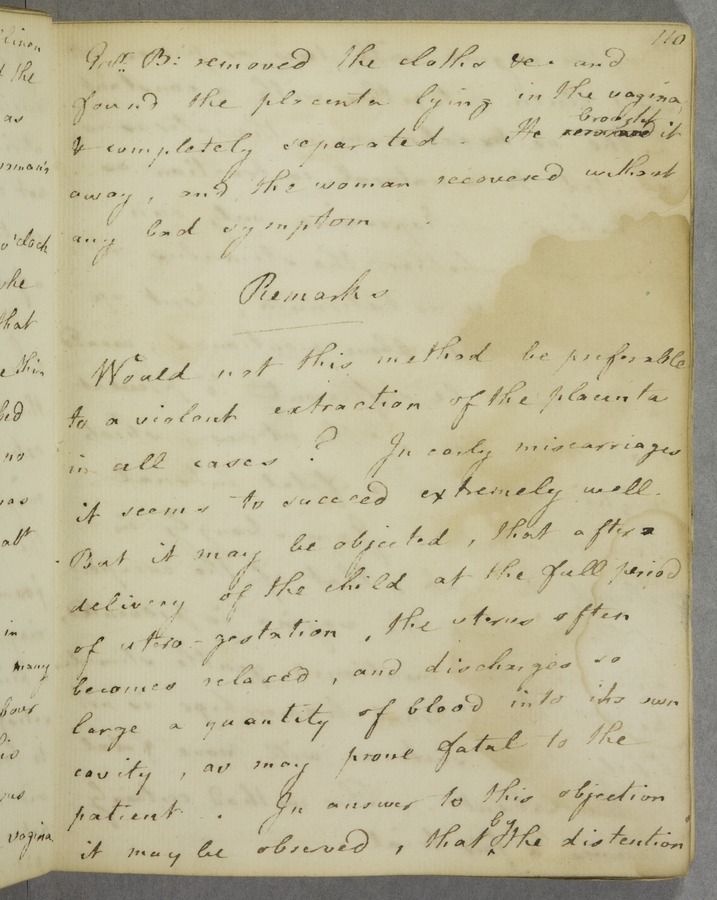 110
B: removed the cloths &c. and
found the placenta lying in the vagina
& completely separated. He brought it
away, and the woman recovered without
any bad symptom
Remarks
Would not this method be preferable
to a violent extraction of the placenta
in all cases? In early miscarriages
it seems to succeed extremely well.
But it may be objected, that after
delivery of the child at the full period
of utero-gestation, the uterus often
becomes relaxed, and discharges so
large a quantity of blood into its own
cavity, as may prove fatal to the
patient. In answer to this objection
it may be observed, that by the distention
linen
the
as
o'clock
she
that
no
in
many
hour
vagina